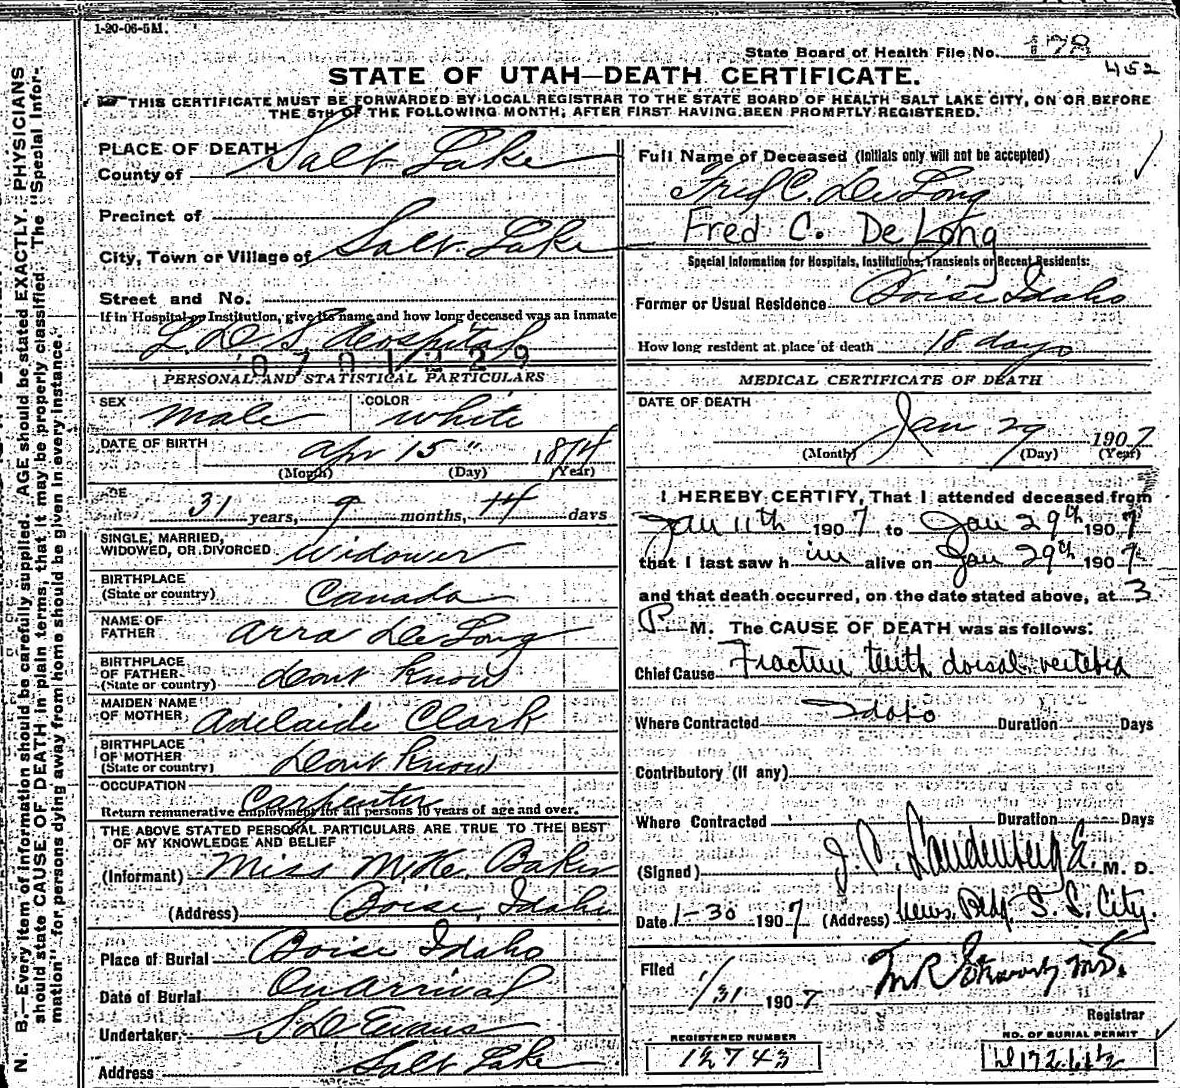 1-20-06-5M.
State Board of Health File No. 178
452
STATE OF UTAH—DEATH CERTIFICATE.
THIS CERTIFICATE MUST BE FORWARDED BY LOCAL REGISTRAR TO THE STATE BOARD OF HEALTH SALT LAKE CITY, ON OR BEFORE
THE 5TH OF THE FOLLOWING MONTH, AFTER FIRST HAVING BEEN PROMPTLY REGISTERED.
N. B.—Every item of information should be carefully supplied. AGE should be stated EXACTLY. PHYSICIANS
should state CAUSE OF DEATH in plain terms, that it may be properly classified. The "Special Infor-
mation" for persons dying away from home should be given in every instance.
PLACE OF DEATH
County of Salt Lake
Precinct of
City, Town or Village of Salt Lake
Street and No.
If in Hospital or Institution, give its name and how long deceased was an Inmate
L. D. S. Hospital
PERSONAL AND STATISTICAL PARTICULARS
SEX male COLOR white
DATE OF BIRTH Apr 15" 1874
(Month) (Day) (Year)
AGE 31 years, 9 months, 14 days
SINGLE, MARRIED,
WIDOWED, OR DIVORCED Widower
BIRTHPLACE
(State or country) Canada
NAME OF
FATHER Arra De Long
BIRTHPLACE
OF FATHER
(State or country) dont know
MAIDEN NAME
OF MOTHER Adelaide Clark
BIRTHPLACE
OF MOTHER
(State or country) Dont Know
OCCUPATION Carpenter
Return remunerative employment for all persons 10 years of age and over.
THE ABOVE STATED PERSONAL PARTICULARS ARE TRUE TO THE BEST
OF MY KNOWLEDGE AND BELIEF
(Informant) Miss Baker
(Address) Boise, Idaho
Place of Burial Boise Idaho
Date of Burial On Arrival
Undertaker S D Evans
Address Salt Lake
Full Name of Deceased (Initials only will not be accepted)
Fred C. De Long
Fred C. De Long
Special Information for Hospitals, Institutions, Transients or Recent Residents:
Former or Usual Residence Boise Idaho
How long resident at place of death 18 days
MEDICAL CERTIFICATE OF DEATH
DATE OF DEATH
Jan 29 1907
(Month) (Day) (Year)
I HEREBY CERTIFY, That I attended deceased from
Jan 11th 1907 to Jan 29th 1907
that I last saw him alive on Jan 29th 1907
and that death occurred, on the date stated above, at 3
P. M. The CAUSE OF DEATH was as follows:
Chief Cause Fracture tenth dorsal vertebra
Where Contracted Idaho Duration Days
Contributory (If any)
Where Contracted Duration Days
(Signed) J. C. Landenberger M. D.
Date 1-30 1907 (Address) News. Bldg. S. L. City.
Filed 1/31 1907
Registrar
REGISTERED NUMBER
12743
NO. OF BURIAL PERMIT